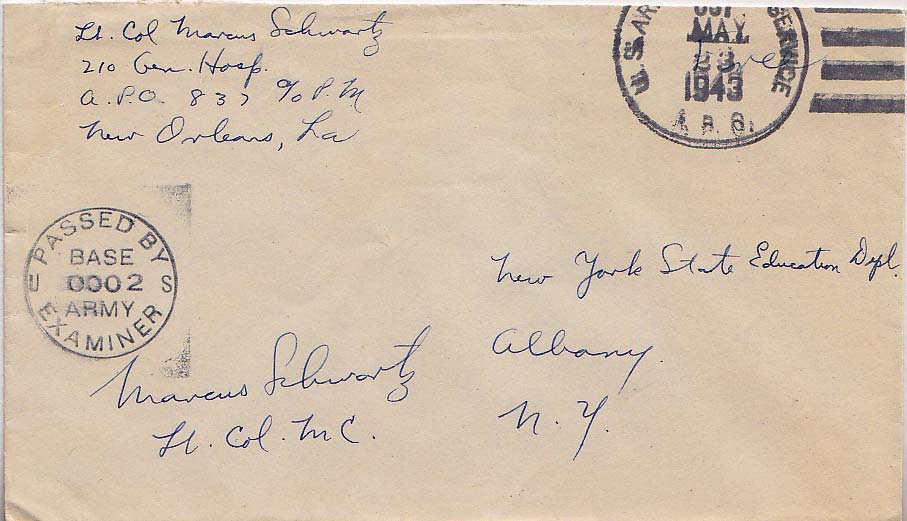 Lt. Col Marcus Schwartz
210 Gen. Hosp.
A.P.O. 837 c/o P.M
New Orleans, La
U.S. AR SERVICE
MAY
23
1943
A.P.O.
Free
PASSED BY
BASE
U 0002 S
ARMY
EXAMINER
New York State Education Dept.
Albany.
N.Y.
Marcus Schwartz
Lt. Col. M C.